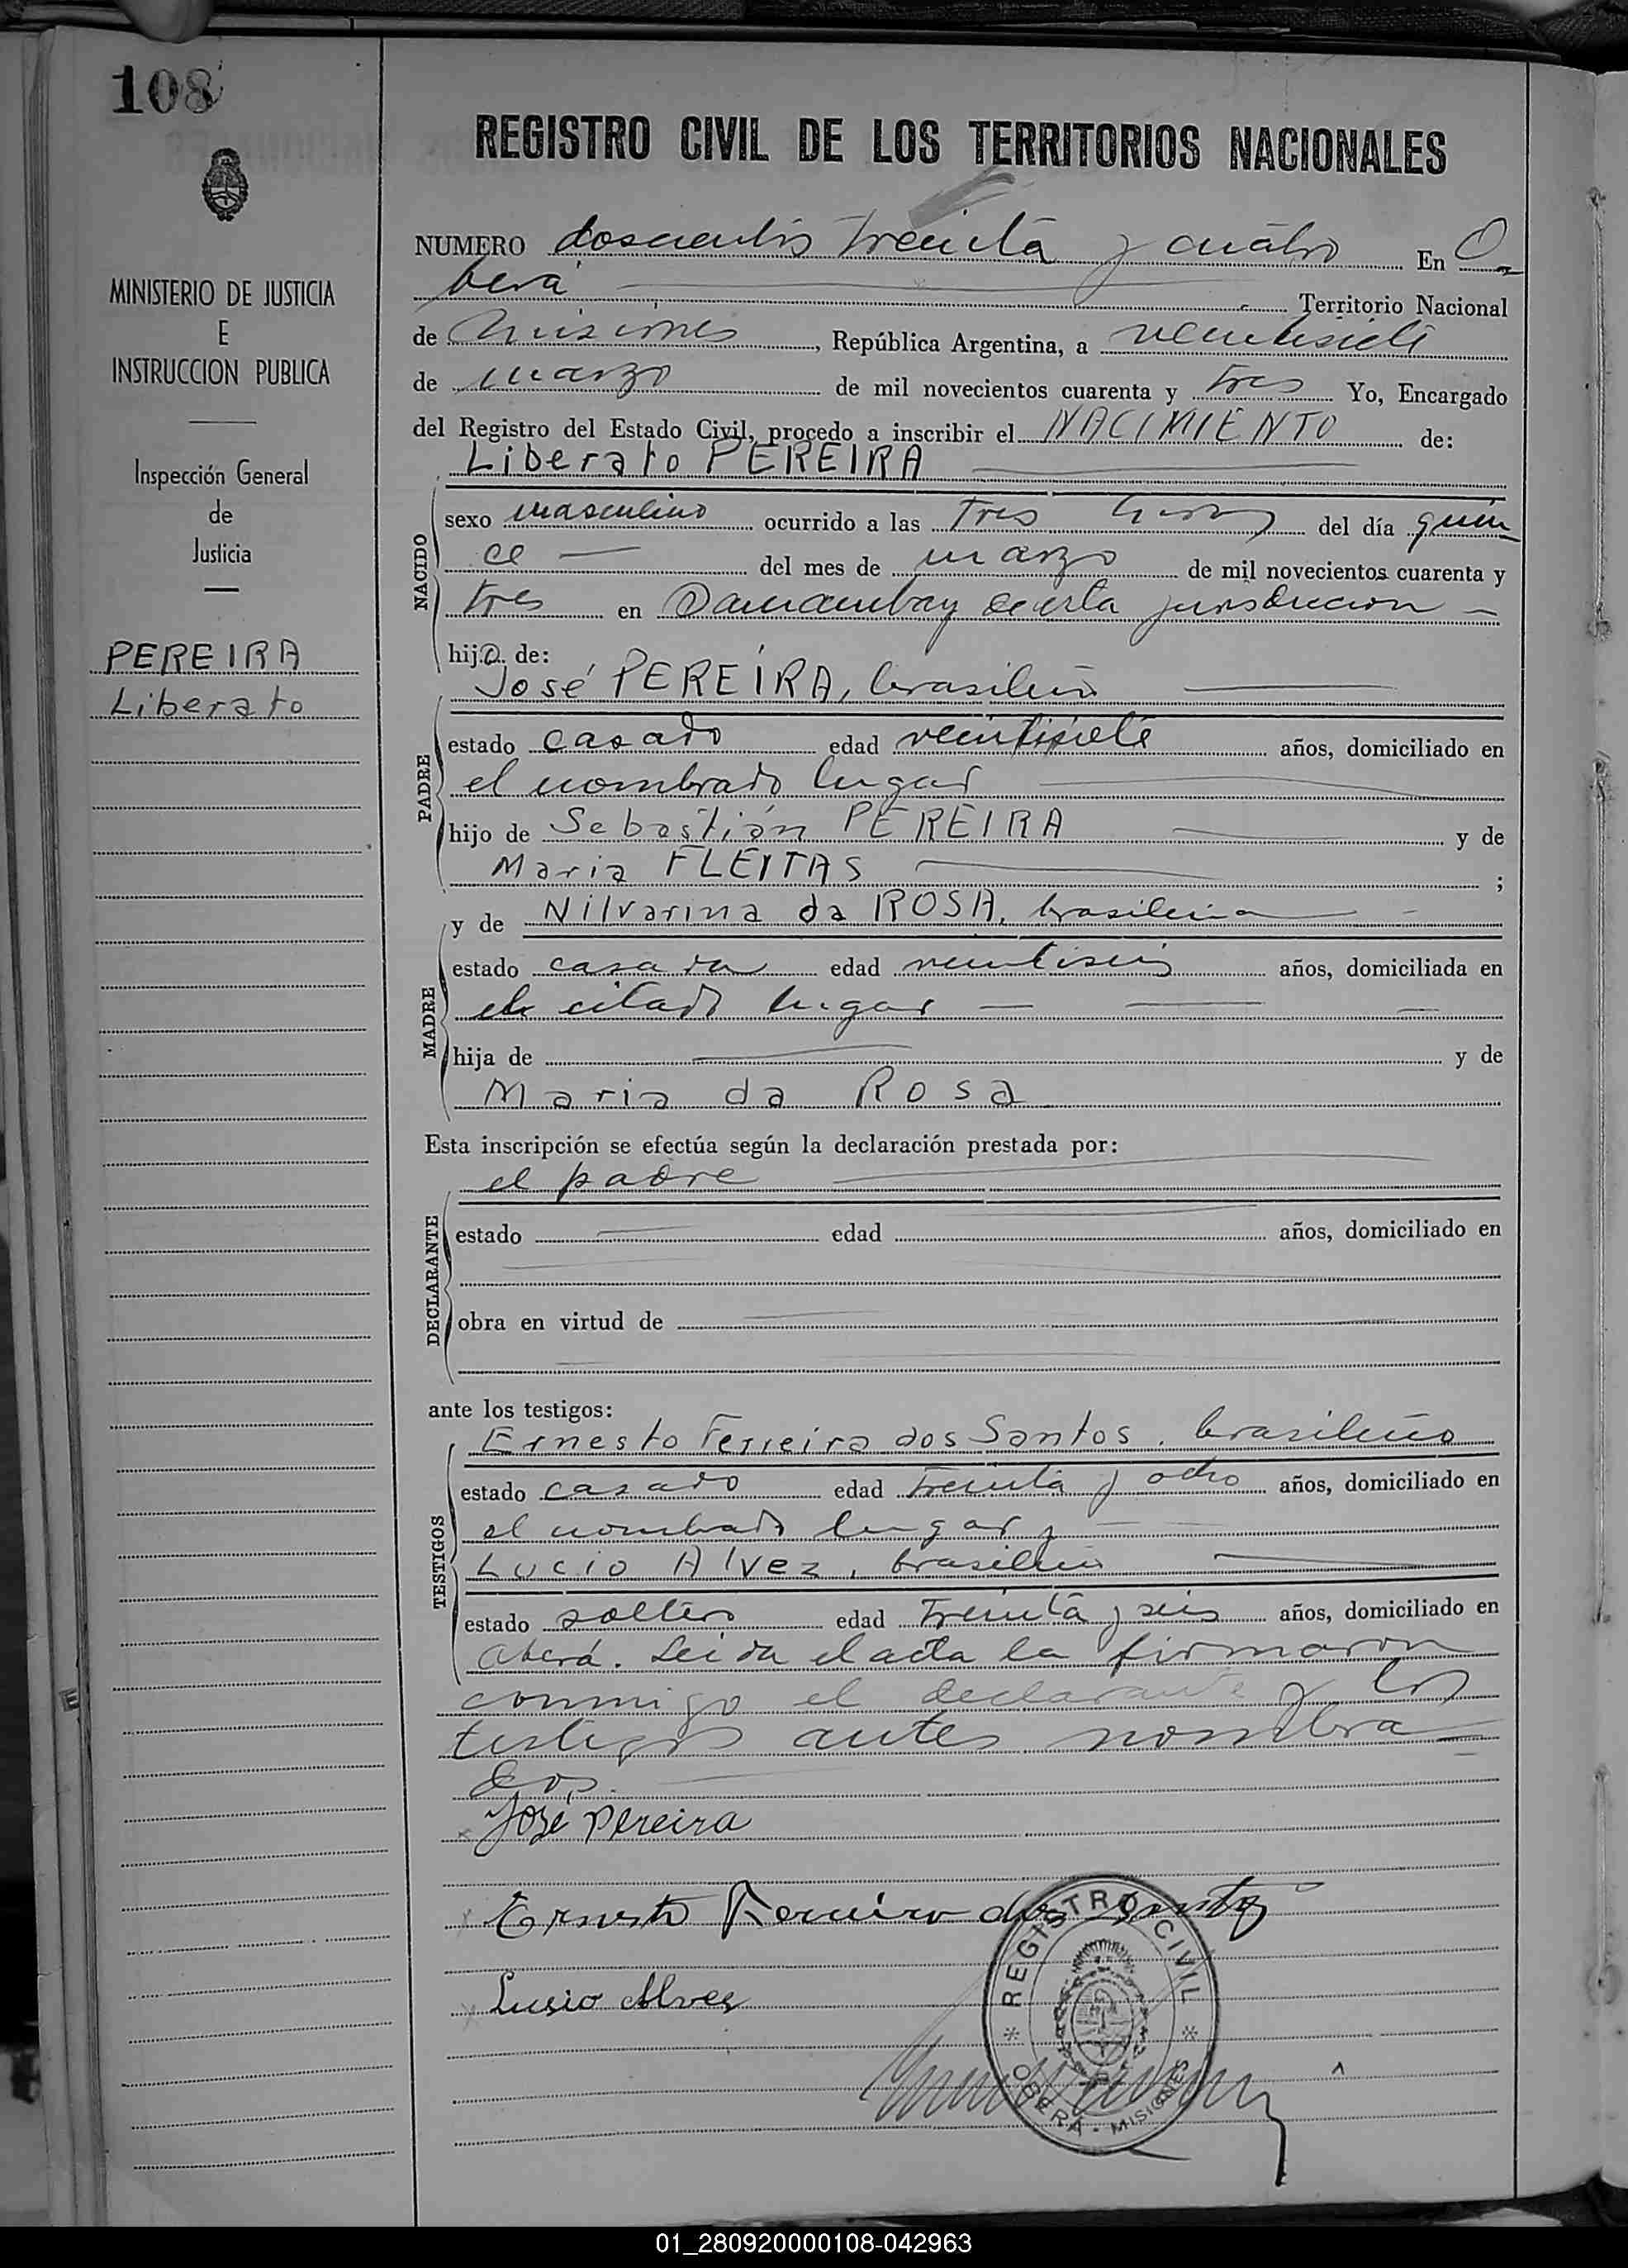 108
REGISTRO CIVIL DE LOS TERRITORIOS NACIONALES
MINISTERIO DE JUSTICIA
E
INSTRUCCION PUBLICA
Inspección General
de
Justicia
PEREIRA
Liberato
NUMERO doscientos treinta y cuatro En O-
berá Territorio Nacional
de Misiones, República Argentina, a veintisiete
de marzo de mil novecientos cuarenta y tres Yo, Encargado
del Registro del Estado Civil, procedo a inscribir el NACIMIENTO de:
Liberato PEREIRA
NACIDO
sexo masculino ocurrido a las tres horas del día quin
ce del mes de marzo de mil novecientos cuarenta y
tres en Panambay de esta jurisdiccion
hijo de:
José PEREIRA, brasileño
PADRE
estado casado edad veintisiete años, domiciliado en
el nombrado lugar
hijo de Sebastián PEREIRA y de
Maria FLEITAS ;
y de Nilvarina da ROSA, brasileña
MADRE
estado casada edad veintiseis años, domiciliada en
el citado lugar
hija de y de
Maria da Rosa
Esta inscripción se efectúa según la declaración prestada por:
el padre
DECLARANTE
estado edad años, domiciliado en
obra en virtud de
ante los testigos:
TESTIGOS
Ernesto Ferreira dos Santos, brasileño
estado casado edad treinta y ocho años, domiciliado en
el nombrado lugar y
Lucio Alvez, brasileño
estado soltero edad treinta y seis años, domiciliado en
Oberá. Leida el acta la firmaron
conmigo el declarante y los
testigos antes nombra
dos.
José Pereira
Ernesto Ferreira dos Santos
Lusio Alves
REGISTRO CIVIL
OBERÁ - MISIONES
01_280920000108-042963